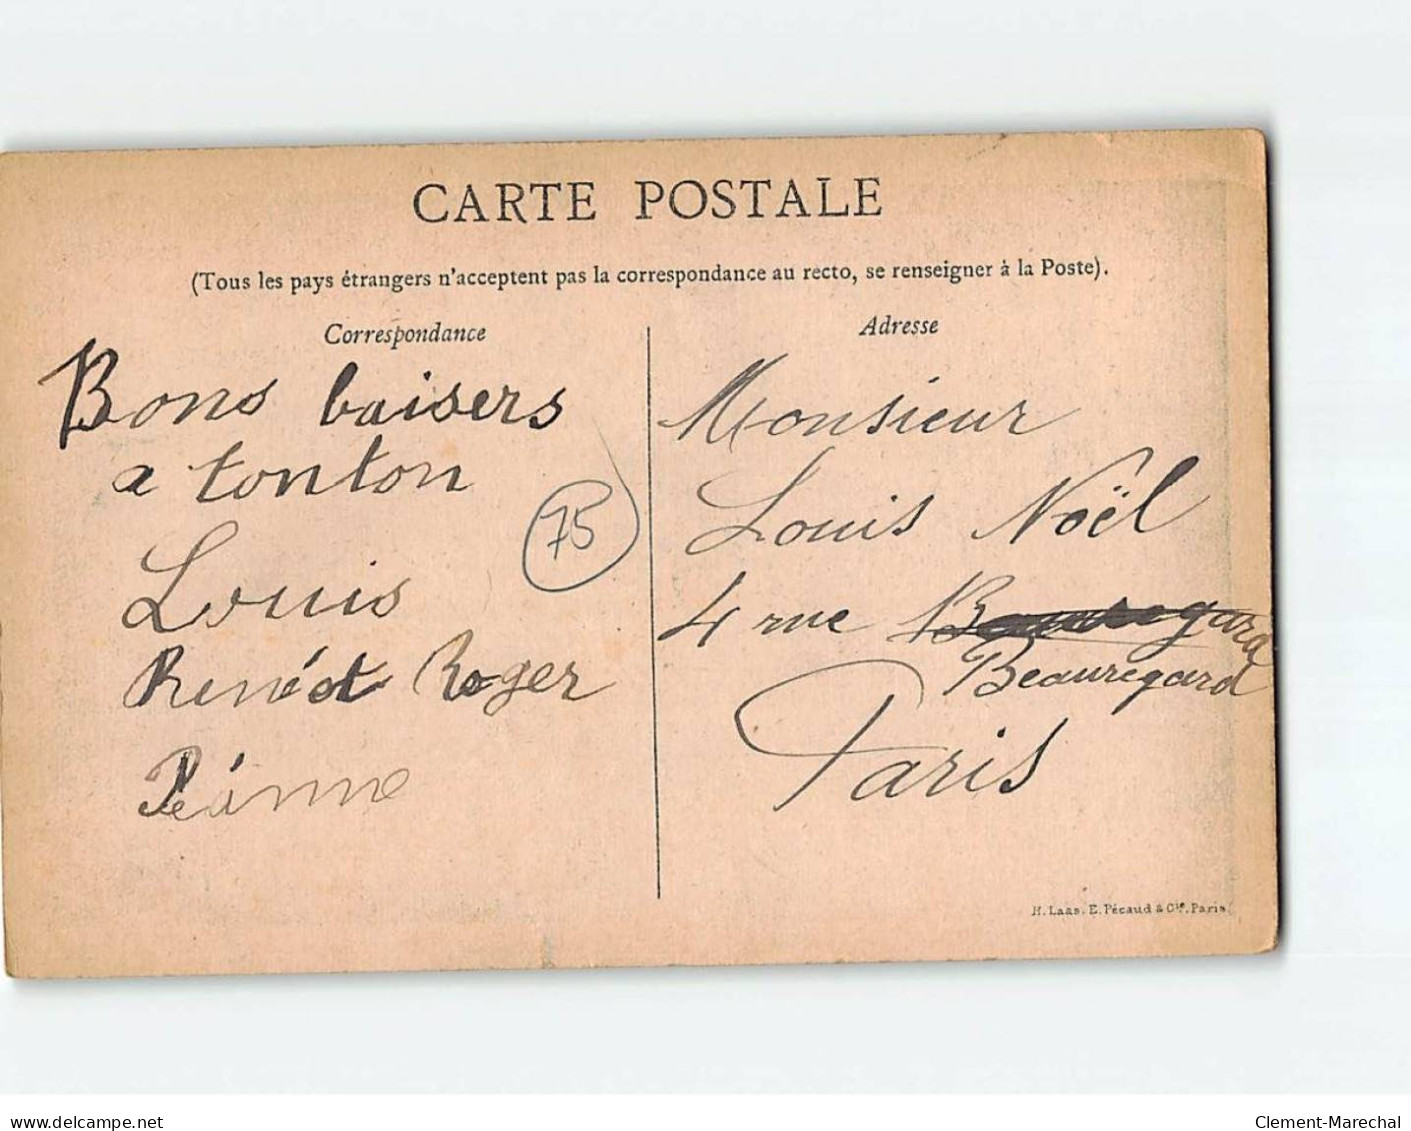 CARTE POSTALE
(Tous les pays étrangers n'acceptent pas la correspondance au recto, se renseigner à la Poste).
Correspondance
Bons baisers
a tonton
Louis
Renéet Roger
Jéanne
75
Adresse
Monsieur
Louis Noël
4 rue Beauregard
Beauregard
Paris
H. Laas, E. Pécaud & Cie, Paris.
delcampe.net
Clement-Marechal